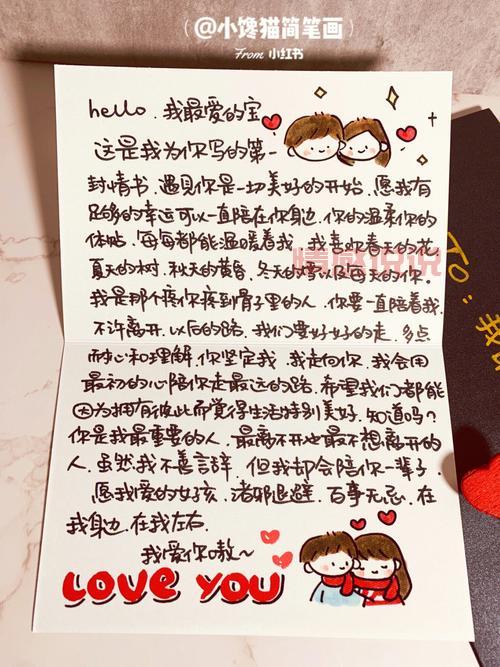 @小馋猫简笔画
From 小红书
hello.我最爱的宝
这是我为你写的第一
封情书.遇见你是一切美好的开始.愿我有
足够的幸运可以一直陪在你身边.你的温柔你的
体贴.每每都能温暖着我.我喜欢春天的花
夏天的树.秋天的黄昏.冬天的雪以及每天的你。
情感说说
我是那个疼你疼到骨子里的人.你要一直陪着我.
不许离开.以后的路.我们要好好的走.多点
耐心和理解.你坚定我.我走向你.我会用
最初的心陪你走最远的路.希望我们都能
因为拥有彼此而觉得生活特别美好.知道吗?
你是我最重要的人.最离不开也最不想离开的
人.虽然我不善言辞.但我却会陪你一辈子
愿我爱的女孩.诸邪退避.百事无忌.在
我身边.在我左右.
我爱你嗷~
LOVE YOU
To:我